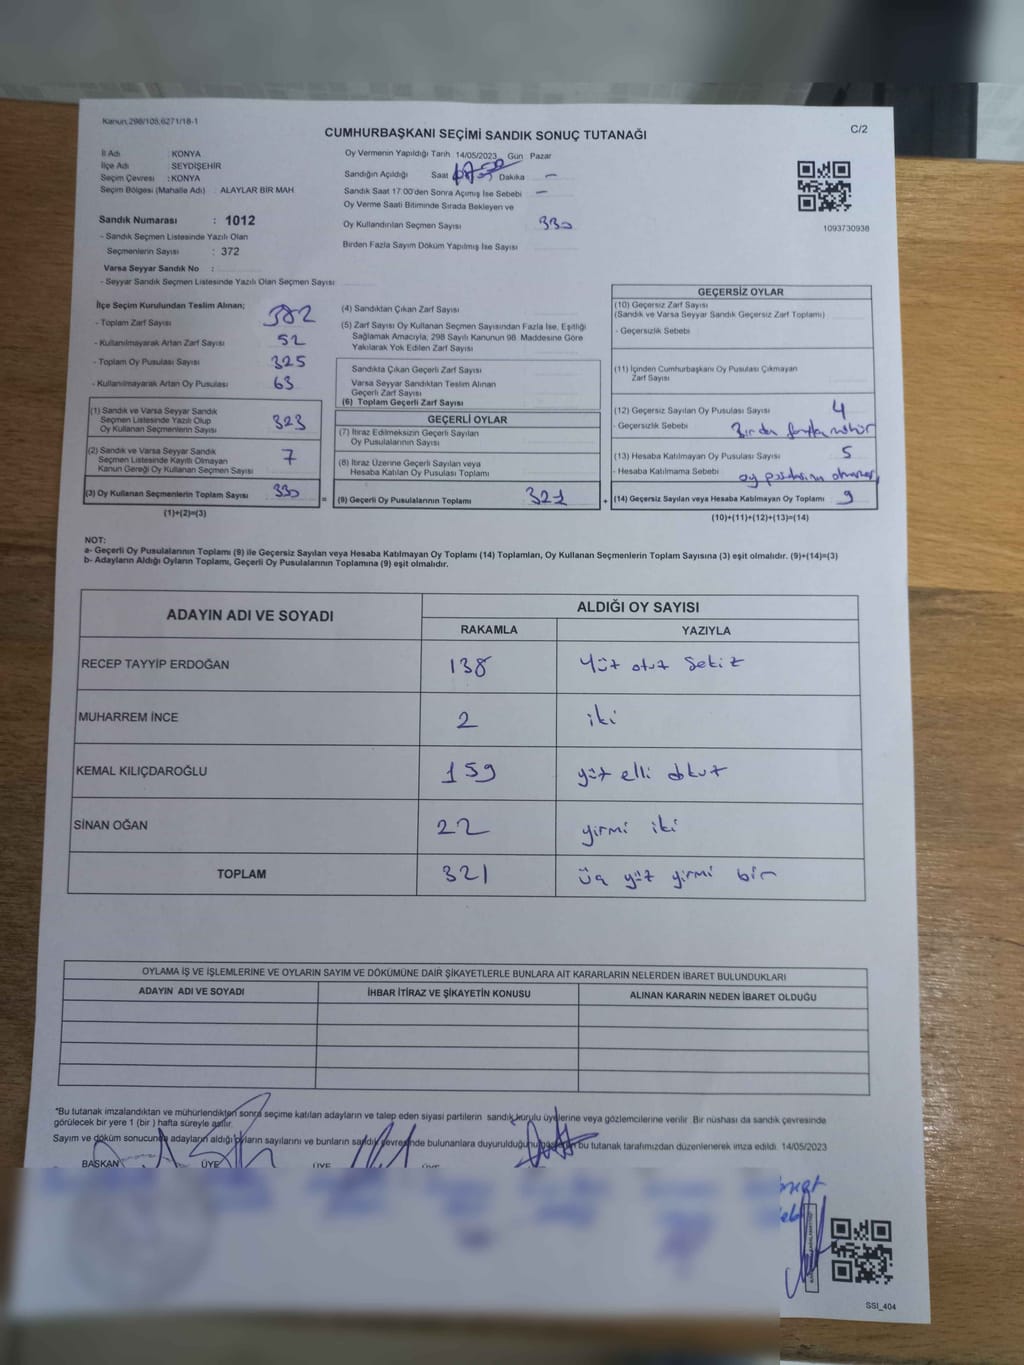 Kanun.298/105,6271/18-1
C/2
CUMHURBAŞKANI SEÇİMİ SANDIK SONUÇ TUTANAĞI
İl Adı : KONYA
İlçe Adı : SEYDİŞEHİR
Seçim Çevresi : KONYA
Seçim Bölgesi (Mahalle Adı) : ALAYLAR BİR MAH
Sandık Numarası : 1012
- Sandık Seçmen Listesinde Yazılı Olan
Seçmenlerin Sayısı : 372
Varsa Seyyar Sandık No :
- Seyyar Sandık Seçmen Listesinde Yazılı Olan Seçmen Sayısı :
Oy Vermenin Yapıldığı Tarih 14/05/2023 Gün Pazar
Sandığın Açıldığı Saat Dakika —
Sandık Saat 17:00'den Sonra Açılmış İse Sebebi —
Oy Verme Saati Bitiminde Sırada Bekleyen ve
Oy Kullandırılan Seçmen Sayısı 330
Birden Fazla Sayım Döküm Yapılmış İse Sayısı
1093730938
İlçe Seçim Kurulundan Teslim Alınan;
- Toplam Zarf Sayısı 382
- Kullanılmayarak Artan Zarf Sayısı 52
- Toplam Oy Pusulası Sayısı 325
- Kullanılmayarak Artan Oy Pusulası 63
(1) Sandık ve Varsa Seyyar Sandık
Seçmen Listesinde Yazılı Olup
Oy Kullanan Seçmenlerin Sayısı 323
(2) Sandık ve Varsa Seyyar Sandık
Seçmen Listesinde Kayıtlı Olmayan
Kanun Gereği Oy Kullanan Seçmen Sayısı 7
(3) Oy Kullanan Seçmenlerin Toplam Sayısı 330 =
(1)+(2)=(3)
(4) Sandıktan Çıkan Zarf Sayısı
(5) Zarf Sayısı Oy Kullanan Seçmen Sayısından Fazla İse, Eşitliği
Sağlamak Amacıyla, 298 Sayılı Kanunun 98. Maddesine Göre
Yakılarak Yok Edilen Zarf Sayısı
Sandıkta Çıkan Geçerli Zarf Sayısı
Varsa Seyyar Sandıktan Teslim Alınan
Geçerli Zarf Sayısı
(6) Toplam Geçerli Zarf Sayısı
GEÇERLİ OYLAR
(7) İtiraz Edilmeksizin Geçerli Sayılan
Oy Pusulalarının Sayısı
(8) İtiraz Üzerine Geçerli Sayılan veya
Hesaba Katılan Oy Pusulası Toplamı
(9) Geçerli Oy Pusulalarının Toplamı 321 +
GEÇERSİZ OYLAR
(10) Geçersiz Zarf Sayısı
(Sandık ve Varsa Seyyar Sandık Geçersiz Zarf Toplamı)
- Geçersizlik Sebebi
(11) İçinden Cumhurbaşkanı Oy Pusulası Çıkmayan
Zarf Sayısı
(12) Geçersiz Sayılan Oy Pusulası Sayısı 4
- Geçersizlik Sebebi Birden fazla mühür
(13) Hesaba Katılmayan Oy Pusulası Sayısı 5
- Hesaba Katılmama Sebebi oy pusulasının
(14) Geçersiz Sayılan veya Hesaba Katılmayan Oy Toplamı 9
(10)+(11)+(12)+(13)=(14)
NOT:
a- Geçerli Oy Pusulalarının Toplamı (9) ile Geçersiz Sayılan veya Hesaba Katılmayan Oy Toplamı (14) Toplamları, Oy Kullanan Seçmenlerin Toplam Sayısına (3) eşit olmalıdır. (9)+(14)=(3)
b- Adayların Aldığı Oyların Toplamı, Geçerli Oy Pusulalarının Toplamına (9) eşit olmalıdır.
ADAYIN ADI VE SOYADI ALDIĞI OY SAYISI
RAKAMLA YAZIYLA
RECEP TAYYİP ERDOĞAN 138 Yüz otuz sekiz
MUHARREM İNCE 2 iki
KEMAL KILIÇDAROĞLU 159 yüz elli dokuz
SİNAN OĞAN 22 yirmi iki
TOPLAM 321 üç yüz yirmi bir
OYLAMA İŞ VE İŞLEMLERİNE VE OYLARIN SAYIM VE DÖKÜMÜNE DAİR ŞİKAYETLERLE BUNLARA AİT KARARLARIN NELERDEN İBARET BULUNDUKLARI
ADAYIN ADI VE SOYADI İHBAR İTİRAZ VE ŞİKAYETİN KONUSU ALINAN KARARIN NEDEN İBARET OLDUĞU
*Bu tutanak imzalandıktan ve mühürlendikten sonra seçime katılan adayların ve talep eden siyasi partilerin sandık kurulu üyelerine veya gözlemcilerine verilir. Bir nüshası da sandık çevresinde
görülecek bir yere 1 (bir) hafta süreyle asılır.
Sayım ve döküm sonucunda adayların aldığı oyların sayılarını ve bunların sandık çevresinde bulunanlara duyurulduğunu bu tutanak tarafımızdan düzenlenerek imza edildi. 14/05/2023
BAŞKAN ÜYE ÜYE ÜYE
SSI_404